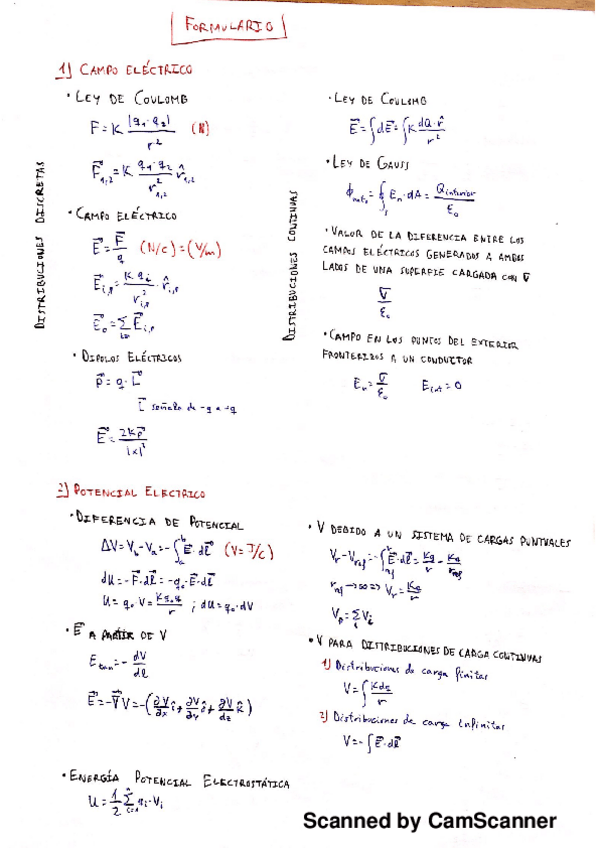 FORMULARIO
1) CAMPO ELÉCTRICO
DISTRIBUCIONES DISCRETAS
• LEY DE COULOMB
F = K |q₁·q₂| / r² (N)
F⃗₁,₂ = K q₁·q₂ / r²₁,₂ r̂₁,₂
• CAMPO ELÉCTRICO
E⃗ = F⃗ / q (N/C) = (V/m)
E⃗ᵢ,ₚ = K qᵢ / r²ᵢ,ₚ r̂ᵢ,ₚ
E⃗ₒ = Σ E⃗ᵢ,ₚ
• DIPOLOS ELÉCTRICOS
p⃗ = q · L⃗
L⃗ señala de -q a +q
E⃗ = 2Kp⃗ / |x|³
DISTRIBUCIONES CONTINUAS
• LEY DE COULOMB
E⃗ = ∫dE⃗ = ∫K dQ·r̂ / r²
• LEY DE GAUSS
ϕneto = ∮s Eₙ·dA = Qinterior / ε₀
• VALOR DE LA DIFERENCIA ENTRE LOS
CAMPOS ELÉCTRICOS GENERADOS A AMBOS
LADOS DE UNA SUPERFIE CARGADA CON σ
σ / ε₀
• CAMPO EN LOS PUNTOS DEL EXTERIOR
FRONTERIZOS A UN CONDUCTOR
Eₙ = σ / ε₀ Eint = 0
2) POTENCIAL ELECTRICO
• DIFERENCIA DE POTENCIAL
ΔV = V_b - V_a = -∫ₐᵇ E⃗·dl⃗ (V = J/C)
dU = -F⃗·dl⃗ = -q₀·E⃗·dl⃗
U = q₀·V = K q₀·q / r ; dU = q₀·dV
• E⃗ A PARTIR DE V
Etan = - dV / dl
E⃗ = -∇⃗V = -(∂V/∂x î + ∂V/∂y ĵ + ∂V/∂z k̂)
• ENERGÍA POTENCIAL ELECTROSTÁTICA
U = 1/2 Σⁿᵢ₌₁ qᵢ·Vᵢ
• V DEBIDO A UN SISTEMA DE CARGAS PUNTUALES
Vr - Vref = -∫ʳref E⃗·dl⃗ = Kq / r - Kq / rref
rref → ∞ ⇒ Vr = Kq / r
Vₚ = Σᵢ Vᵢ
• V PARA DISTRIBUCIONES DE CARGA CONTINUAS
1) Distribuciones de carga finitas
V = ∫ Kdq / r
2) Distribuciones de carga infinitas
V = -∫E⃗·dl⃗
Scanned by CamScanner